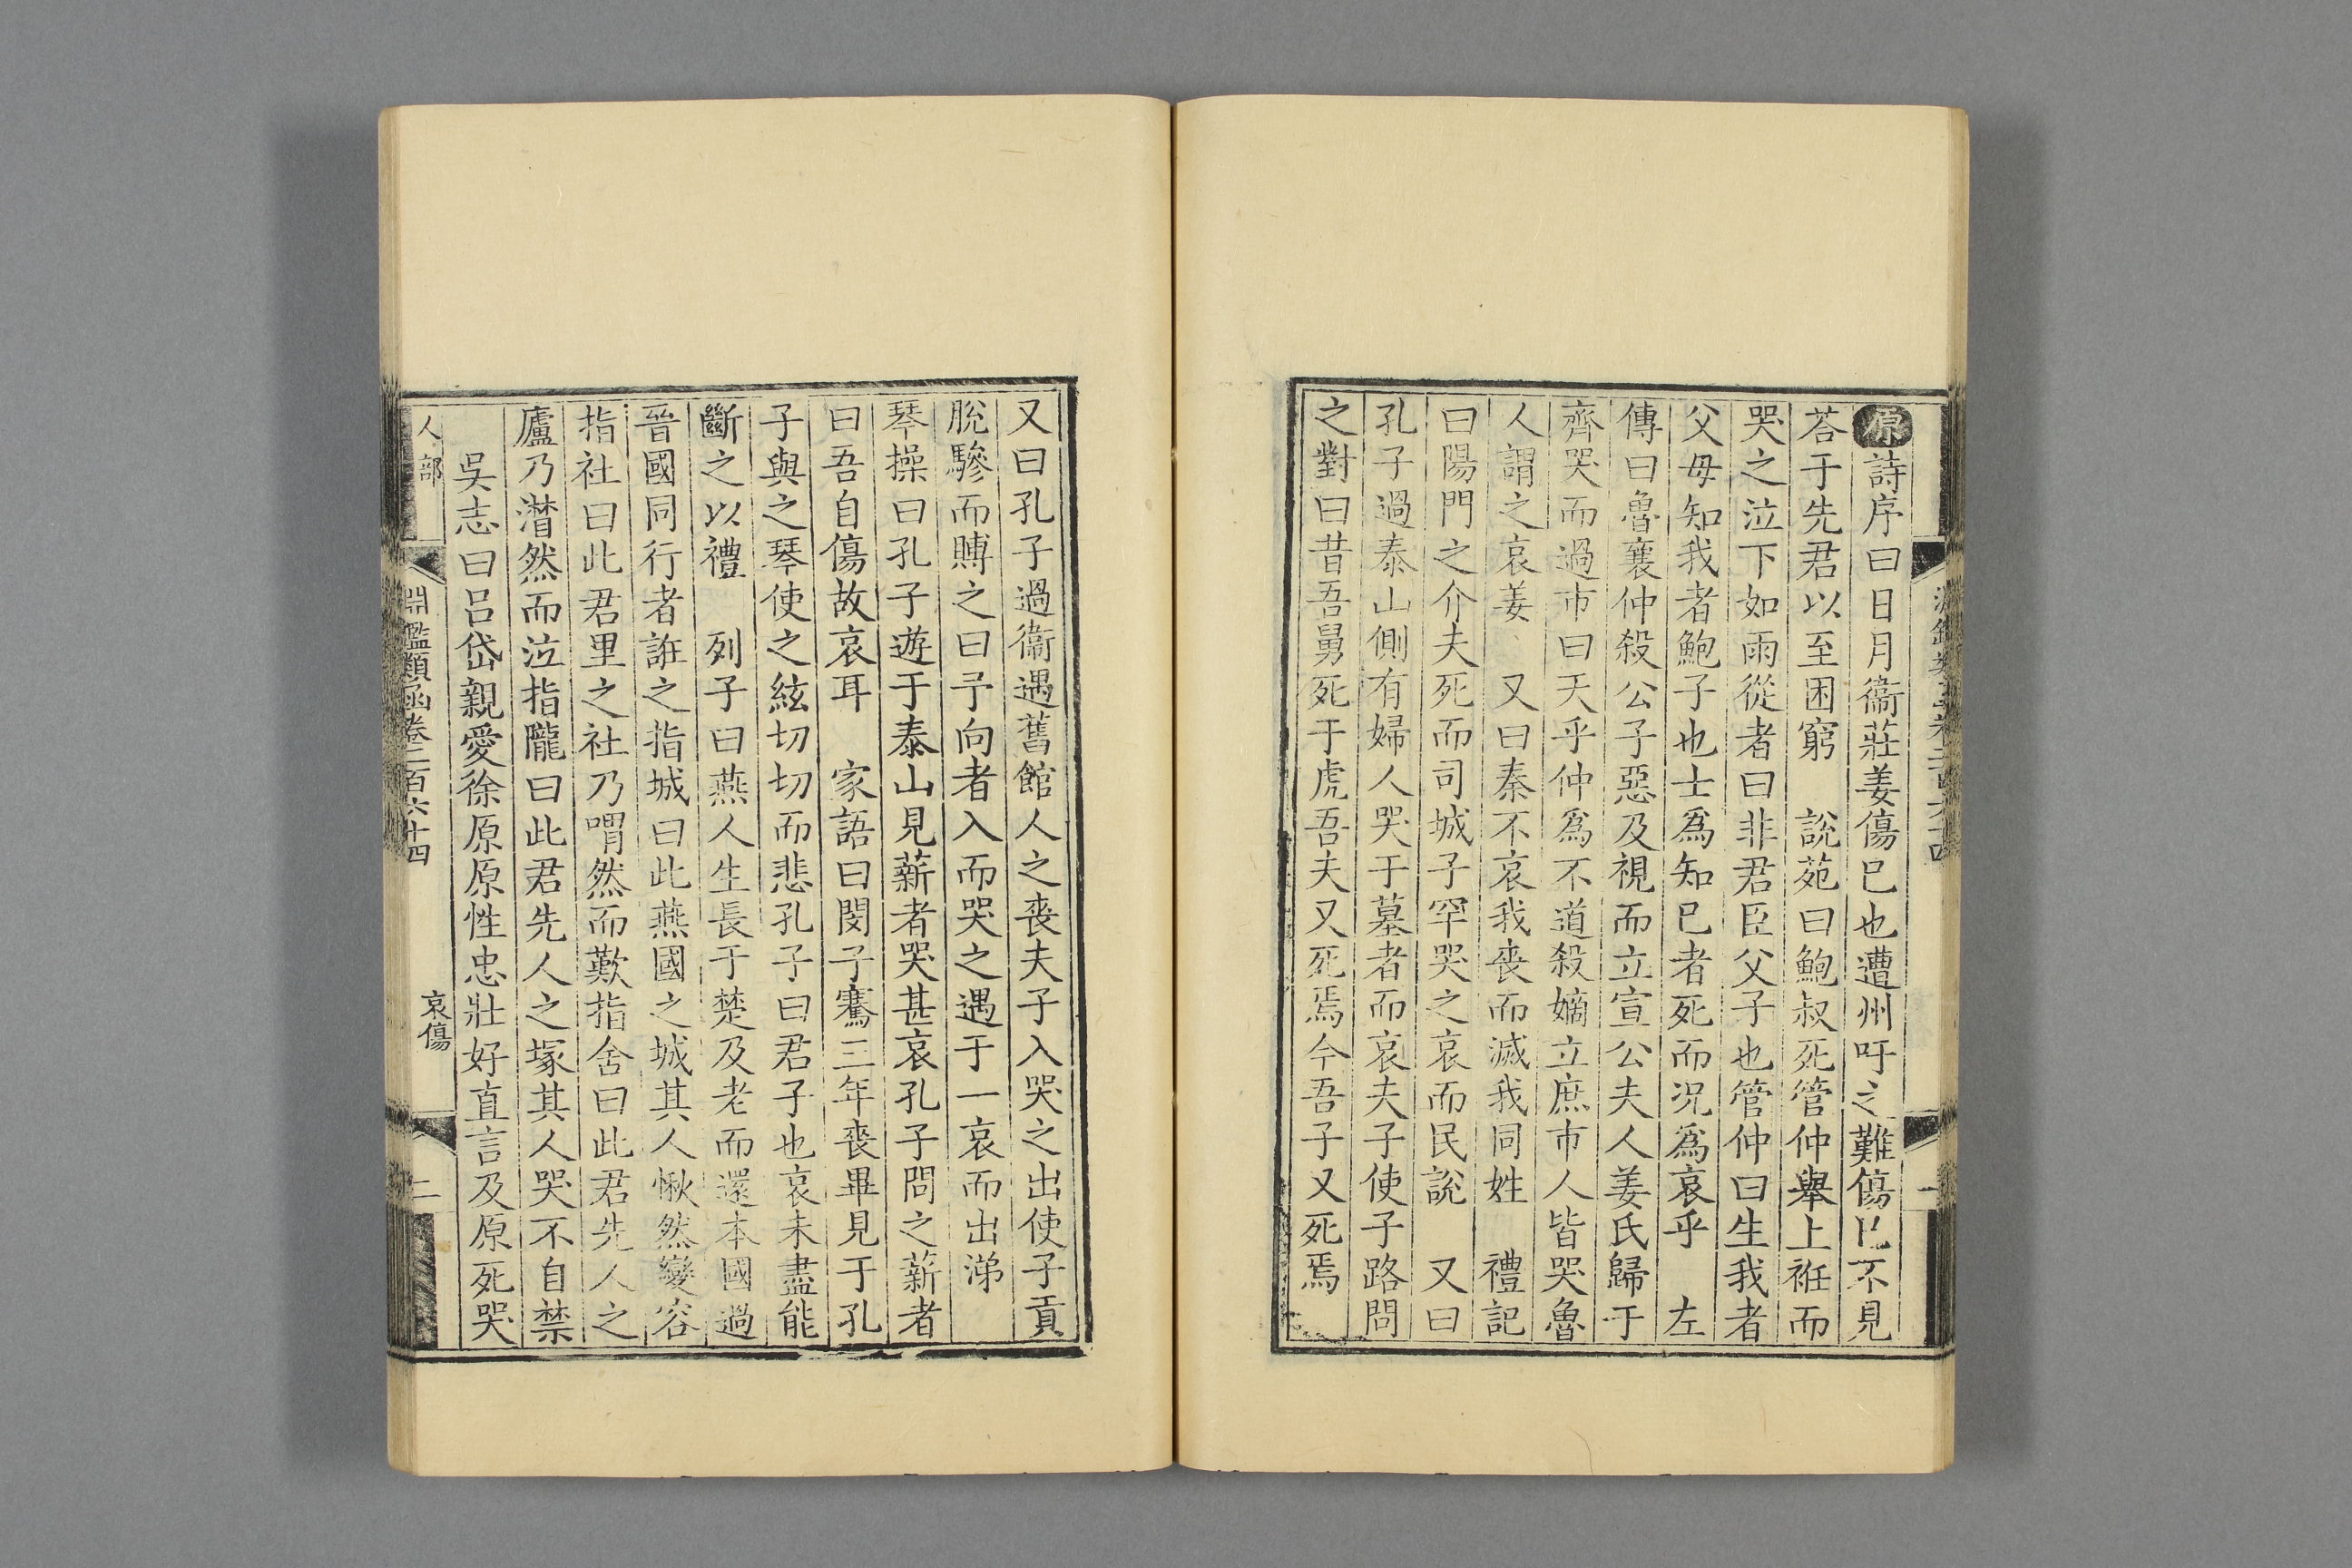 原詩序曰日月衞莊姜傷己也遭州吁之難傷已不見
荅于先君以至困窮　說苑曰鮑叔死管仲舉上袵而
哭之泣下如雨從者曰非君臣父子也管仲曰生我者
父母知我者鮑子也士爲知已者死而況爲哀乎　左
傳曰魯襄仲殺公子惡及視而立宣公夫人姜氏歸于
齊哭而過市曰天乎仲爲不道殺嫡立庶市人皆哭魯
人謂之哀姜　又曰秦不哀我喪而滅我同姓　禮記
曰陽門之介夫死而司城子罕哭之哀而民說　又曰
孔子過泰山側有婦人哭于墓者而哀夫子使子路問
之對曰昔吾舅死于虎吾夫又死焉今吾子又死焉
又曰孔子過衞遇舊館人之喪夫子入哭之出使子貢
脫驂而賻之曰予向者入而哭之遇于一哀而出涕
琴操曰孔子遊于泰山見薪者哭甚哀孔子問之薪者
曰吾自傷故哀耳　家語曰閔子騫三年喪畢見于孔
子與之琴使之絃切切而悲孔子曰君子也哀未盡能
斷之以禮　列子曰燕人生長于楚及老而還本國過
晉國同行者誑之指城曰此燕國之城其人愀然變容
指社曰此君里之社乃喟然而歎指舍曰此君先人之
廬乃潸然而泣指隴曰此君先人之塚其人哭不自禁
吳志曰呂岱親愛徐原原性忠壯好直言及原死哭
人部　淵鑑類函卷二百六十四　哀傷　二